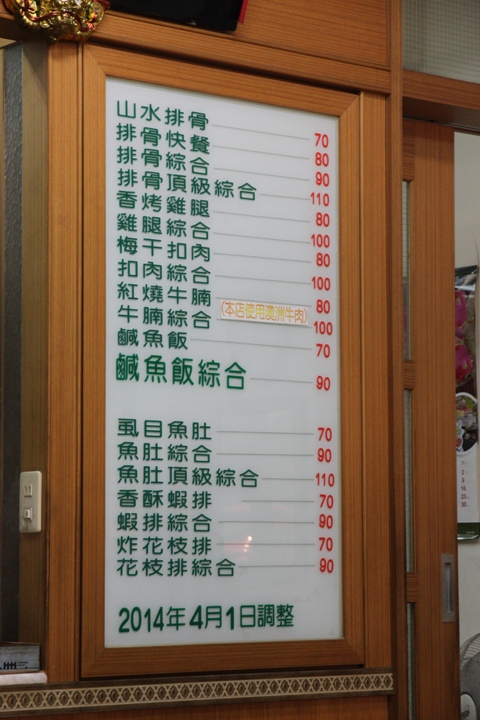 山水排骨 70
排骨快餐 80
排骨綜合 90
排骨頂級綜合 110
香烤雞腿 80
雞腿綜合 100
梅干扣肉 80
扣肉綜合 100
紅燒牛腩 80
(本店使用澳洲牛肉)
牛腩綜合 100
鹹魚飯 70
鹹魚飯綜合 90
虱目魚肚 70
魚肚綜合 90
魚肚頂級綜合 110
香酥蝦排 70
蝦排綜合 90
炸花枝排 70
花枝排綜合 90
2014年4月1日調整